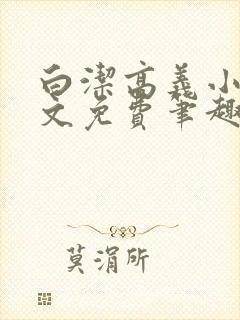 白潔高義小
文免費笔趣
莫涓所